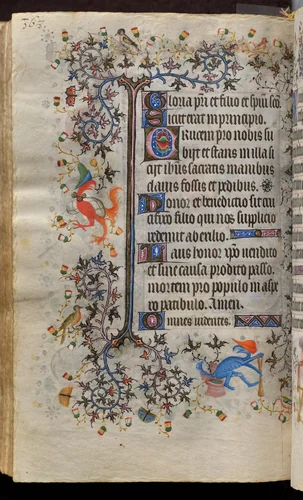 363.
Gloria pri et filio et spiui sco
sicut erat in principio.
Crucem pro nobis su
biit et stans in illa si
ciit ihus sacratis manibus
clauis fossis et pedibus.
Honor et benedictio sit cru
cifixo filio qui nos suplicio
redemit ab exilio.
Laus honor xpo vendito
et sine causa prodito passo
mortem pro populo in aspe
ro patibulo. Amen.
Omnes videntes.